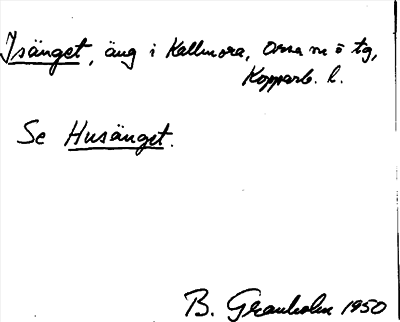 Isänget, äng i Kallmora, Orsa m ö tg,
Kopparb. l.
Se Husänget.
B. Granholm 1950